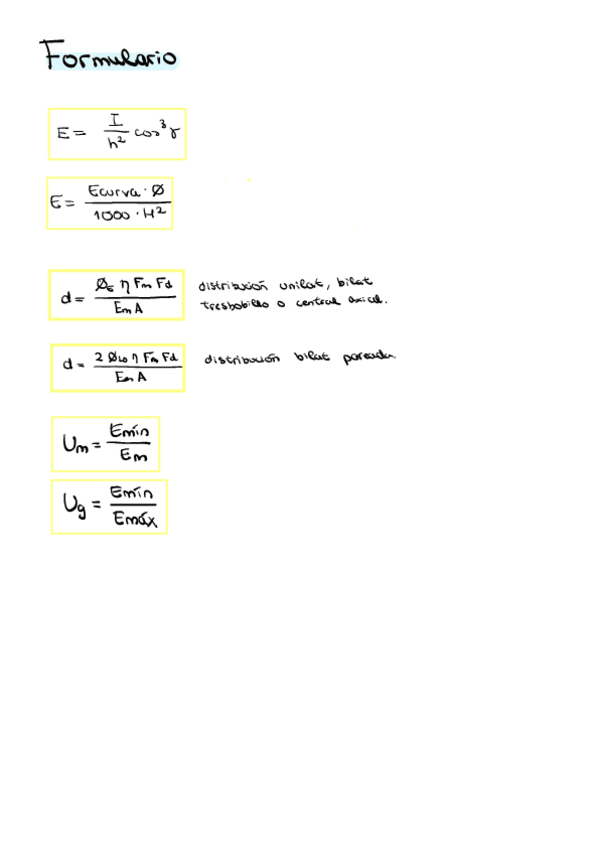 Formulario
E = I/h² cos³ γ
E = Ecurva · Ø / 1000 · H²
d = Ø_L η Fm Fd / Em A distribución unilat, bilat
tresbobillo o central axial.
d = 2 Ø_L η Fm Fd / Em A distribución bilat pareada.
Um = Emín / Em
Ug = Emín / Emáx